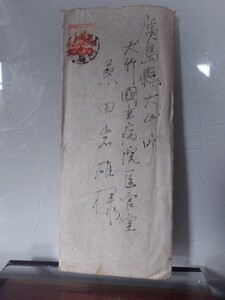 廣島縣大竹町
大竹國立病院医官室
桑田忠雄様